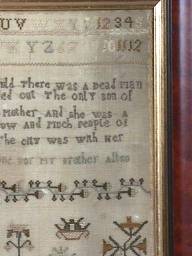 UVWXY 1234
YZ 67 101112
uld There was A Dead Man
ed out The only son of
Mother And she was A
ow And Much People of
The city was with Her
one for My Brother